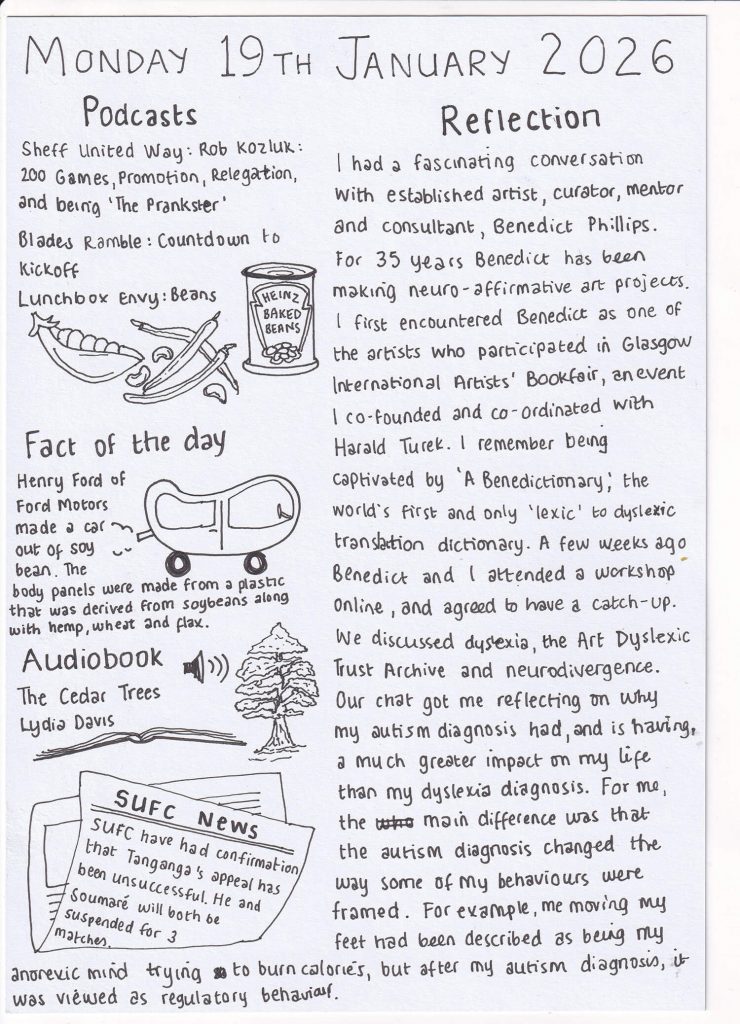 MONDAY 19TH JANUARY 2026
Podcasts
Sheff United Way: Rob Kozluk:
200 Games, Promotion, Relegation,
and being 'The Prankster'
Blades Ramble: Countdown to
Kickoff
Lunchbox Envy: Beans
HEINZ
BAKED
BEANS
Fact of the day
Henry Ford of
Ford Motors
made a car
out of soy
bean. The
body panels were made from a plastic
that was derived from soybeans along
with hemp, wheat and flax.
Audiobook
The Cedar Trees
Lydia Davis
SUFC NEWS
SUFC have had confirmation
that Tanganga's appeal has
been unsuccessful. He and
Soumaré will both be
suspended for 3
matches.
Reflection
I had a fascinating conversation
with established artist, curator, mentor
and consultant, Benedict Phillips.
For 35 years Benedict has been
making neuro-affirmative art projects.
I first encountered Benedict as one of
the artists who participated in Glasgow
International Artists' Bookfair, an event
I co-founded and co-ordinated with
Harald Turek. I remember being
captivated by 'A Benedictionary', the
world's first and only 'lexic' to dyslexic
translation dictionary. A few weeks ago
Benedict and I attended a workshop
online, and agreed to have a catch-up.
We discussed dyslexia, the Art Dyslexic
Trust Archive and neurodivergence.
Our chat got me reflecting on why
my autism diagnosis had, and is having,
a much greater impact on my life
than my dyslexia diagnosis. For me,
the main difference was that
the autism diagnosis changed the
way some of my behaviours were
framed. For example, me moving my
feet had been described as being my
anorexic mind trying to burn calories, but after my autism diagnosis, it
was viewed as regulatory behaviour.